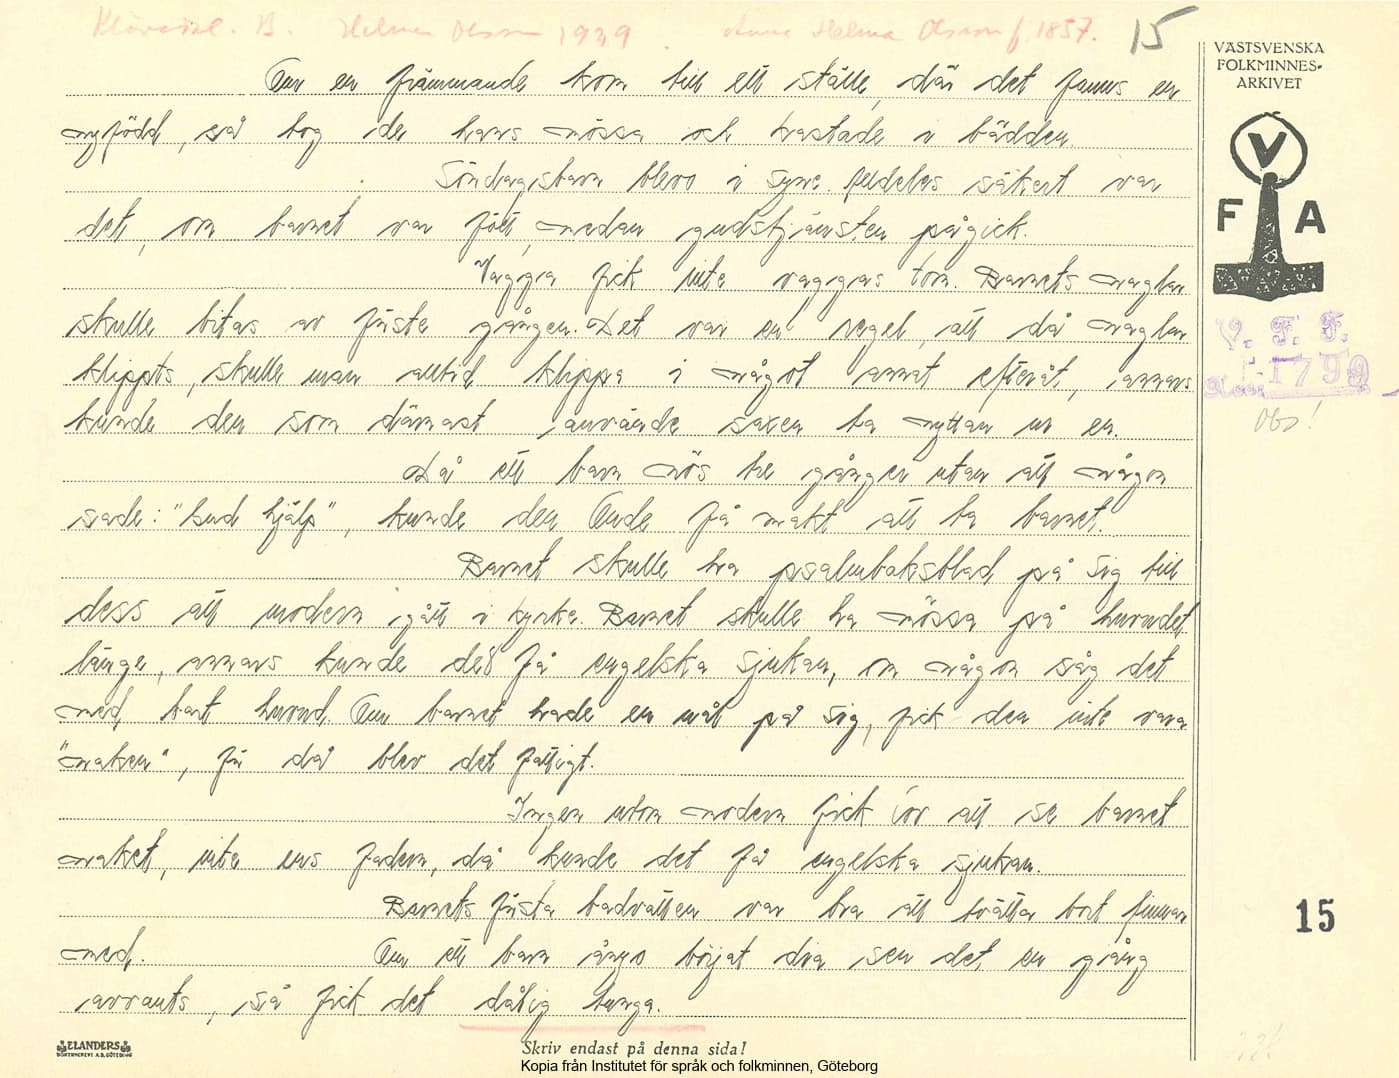 Klövedal. B. Helmer Olsson 1929. Anna Helena Olsson f. 1857. 15
VÄSTSVENSKA
FOLKMINNES-
ARKIVET
V
F A
Om en främmande kom till ett ställe, där det fanns en
nyfödd, så tog de hans mössa och kastade i bädden.
Söndagsbarn blevo i syne. Alldeles säkert var
det, om barnet var fött, medan gudstjänsten pågick.
Vagga fick inte vaggas tom. Barnets naglar
skulle bitas av första gången. Det var en regel, att då naglar
klippts, skulle man alltid klippa i något annat efteråt, annars
kunde den som därnäst använde saxen ta nyttan ur en.
Då ett barn nös tre gånger utan att någon
sade: "Gud hjälp", kunde den Onde få makt att ta barnet.
Barnet skulle ha psalmboksblad på sig till
dess att modern gått i kyrka. Barnet skulle ha mössa på huvudet
länge, annars kunde det få engelska sjukan, om någon såg det
med bart huvud. Om barnet hade en nål på sig, fick den inte vara
"naken", för då blev det fattigt.
Ingen utom modern fick lov att se barnet
naket, inte ens fadern, då kunde det få engelska sjukan.
Barnets första badvatten var bra att tvätta bort finnar
med. Om ett barn ångo börjat dia sen det en gång
avvants, så fick det dålig tunga.
V. F. F.
1799
Obs!
15
ELANDERS
BOKTRYCKERI A.B. GÖTEBORG
Skriv endast på denna sida!
Kopia från Institutet för språk och folkminnen, Göteborg